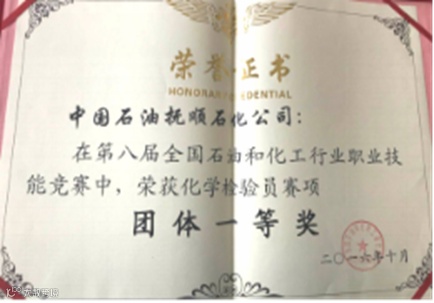 荣誉证书
中国石油抚顺石化公司：
在第八届全国石油和化工行业职业技
能竞赛中，荣获化学检验员赛项
团体一等奖
二〇一六年十月